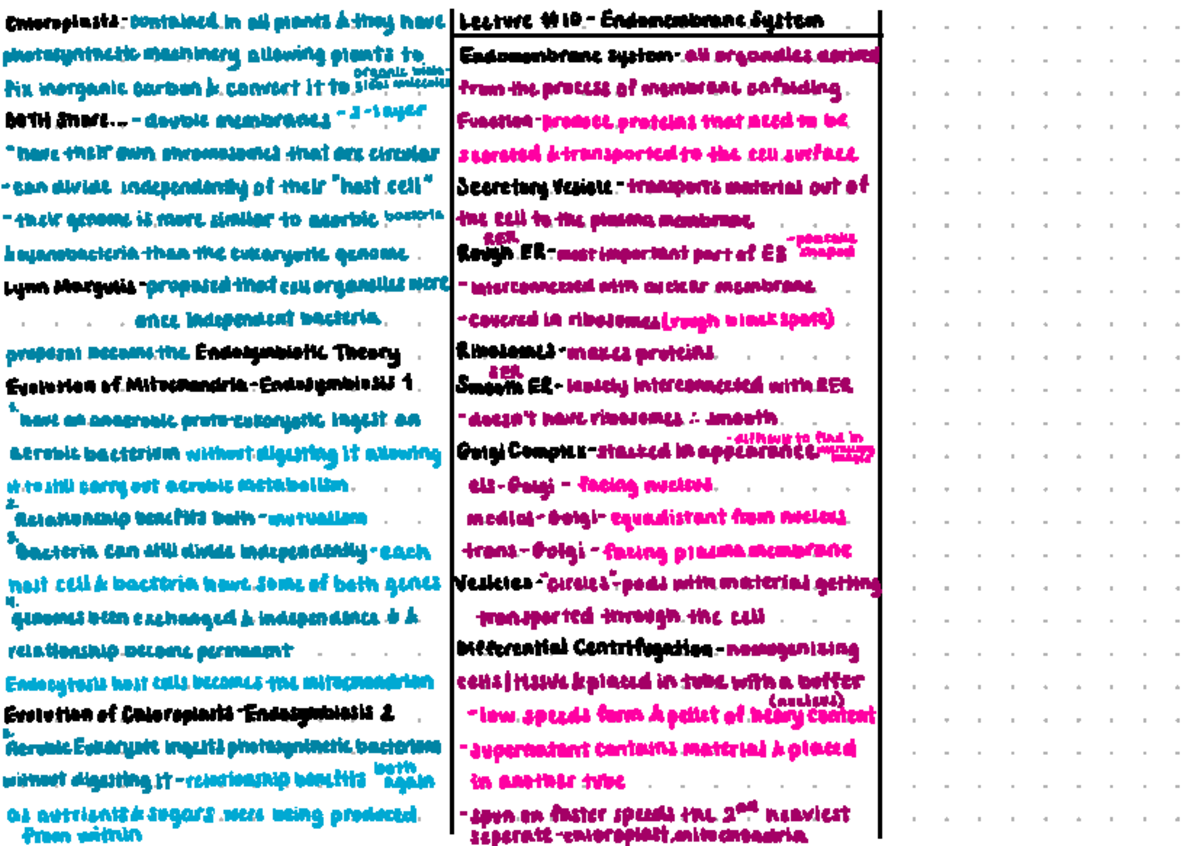 Chloroplasts - contained in all plants & they have
photosynthetic machinery allowing plants to
fix inorganic carbon & convert it to organic molecules
BOTH Share... - double membranes - 2-layer
- have their own chromosomes that are circular
- can divide independently of their "host cell"
- their genome is more similar to aerobic bacteria
& cyanobacteria than the eukaryotic genome
Lynn Margulis - proposed that cell organelles were
once independent bacteria
proposal became the Endosymbiotic Theory
Evolution of Mitochondria - Endosymbiosis 1
1. have an anaerobic proto-eukaryotic ingest an
aerobic bacterium without digesting it allowing
it to still carry out aerobic metabolism
2. Relationship benefits both - mutualism
3. Bacteria can still divide independently - each
host cell & bacteria have some of both genes
4. genomes been exchanged & independence ↓ &
relationship become permanent
Endocytosis host cells becomes the mitochondrian
Evolution of Chloroplasts - Endosymbiosis 2
1. Aerobic Eukaryote ingests photosynthetic bacterium
without digesting it - relationship benefits both again
as nutrients & sugars were being produced
from within
Lecture #10 - Endomembrane System
Endomembrane system - all organelles derived
from the process of membrane enfolding
Function - produce proteins that need to be
secreted & transported to the cell surface
Secretory Vesicle - transports material out of
the cell to the plasma membrane
RER
Rough ER - most important part of ER - pancake shaped
- interconnected with nuclear membrane
- covered in ribosomes (rough black spots)
Ribosomes - makes proteins
SER
Smooth ER - loosely interconnected with RER
- doesn't have ribosomes ∴ smooth
- difficult to find in
Golgi Complex - stacked in appearance
cis-Golgi - facing nucleus
medial-Golgi - equadistant from nucleus
trans-Golgi - facing plasma membrane
Vesicles - "circles" - pods with material getting
transported through the cell
Differential Centrifugation - homogenizing
cells/tissue & placed in tube with a buffer
(nucleus)
- low speeds form a pellet of heavy content
- supernatant contains material & placed
in another tube
- spun on faster speeds the 2nd heaviest
seperate - chloroplast, mitochondria